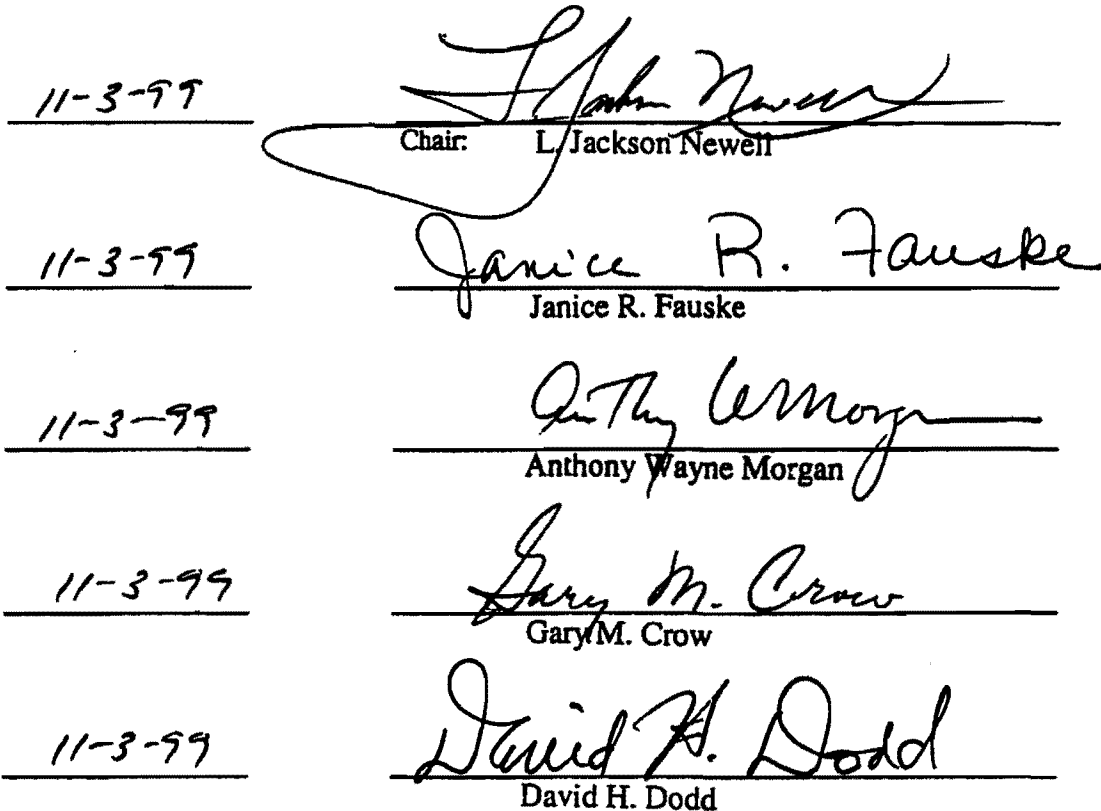 11-3-99 L Jackson Newell
Chair: L. Jackson Newell
11-3-99 Janice R. Fauske
Janice R. Fauske
11-3-99 Anthony W Morgan
Anthony Wayne Morgan
11-3-99 Gary M. Crow
Gary M. Crow
11-3-99 David H. Dodd
David H. Dodd